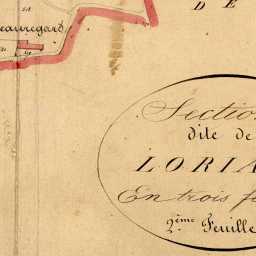 DE
eauregard
Section
dite de
LORIA
En trois f
2ème Feuille